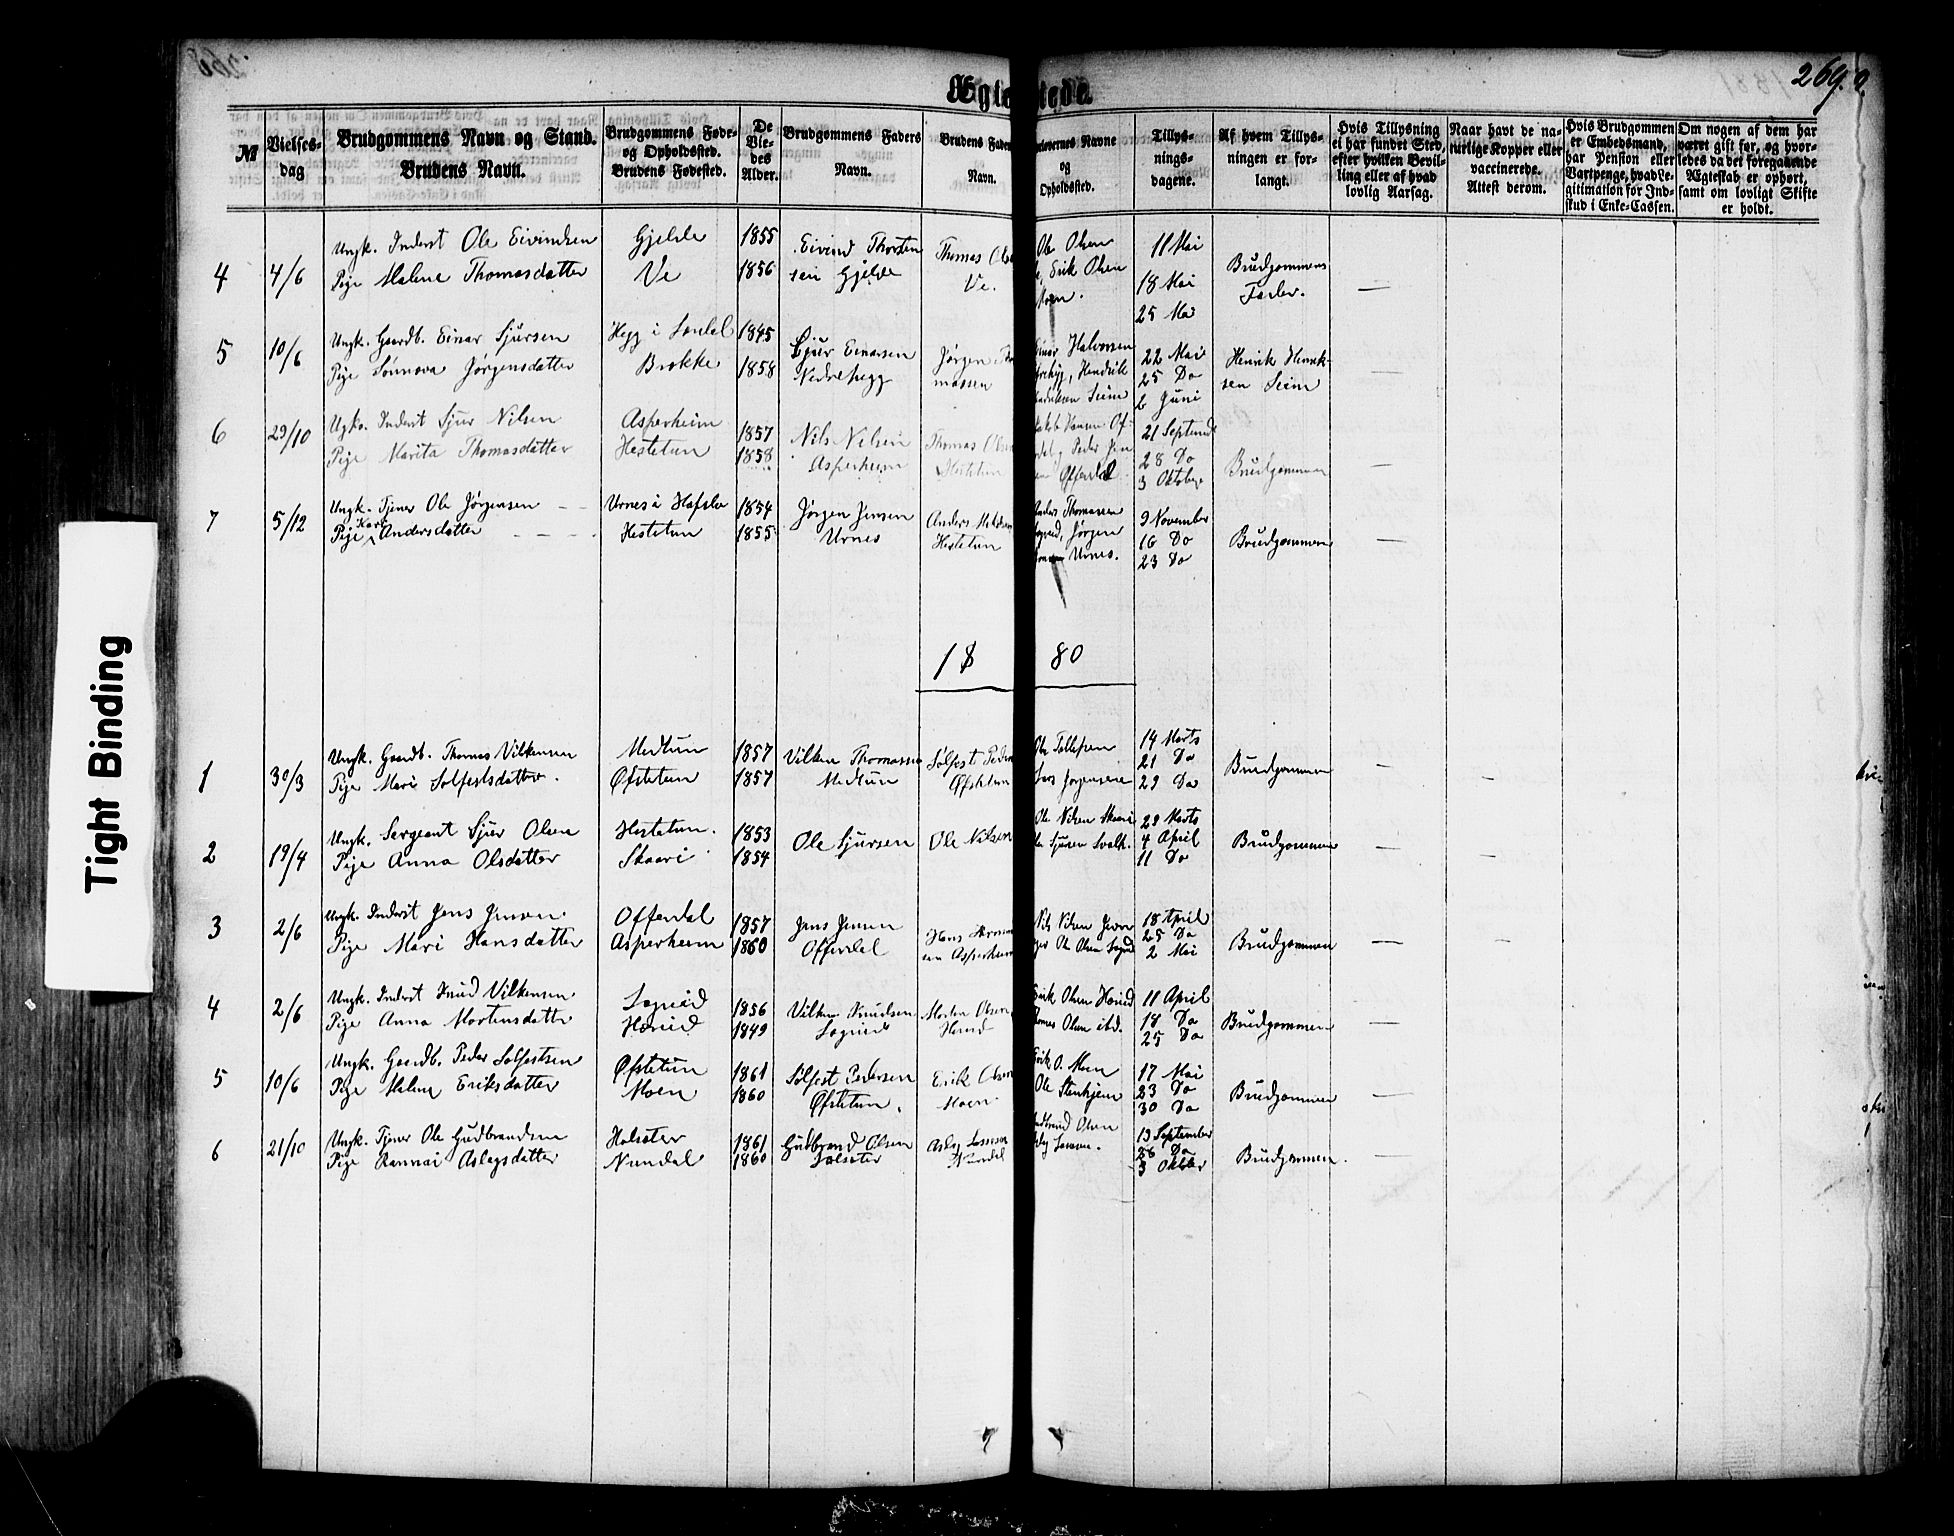 269.
Ægte stede
№
Vielses-
dag
Brudgommens Navn og Stand.
Brudens Navn.
Brudgommens Føde-
og Opholdssted.
Brudens Fødested.
De
Vie-
des
Alder.
Brudgommens Faders
Navn.
Brudens Faders
Navn.
Forlovernes Navne
og
Opholdssted.
Tillys-
nings-
dagene.
Af hvem Tillys-
ningen er for-
langt.
Hvis Tillysning
ei har fundet Sted,
efter hvilken Bevil-
ling eller af hvad
lovlig Aarsag.
Naar havt de na-
turlige Kopper eller
vaccinerede.
Attest derom.
Hvis Brudgommen
er Embedsmand,
har Pension eller
Vartpenge, hvad Le-
gitimation for Ind-
skud i Enke-Cassen.
Om nogen af dem har
været gift før, og hvor-
ledes da det foregaaende
Ægteskab er ophørt,
samt om lovligt Skifte
er holdt.
4 4/6
Ungk. Inderst Ole Eivindsen
Pige Malene Thomasdatter
Gjelde
Ve
1855
1856
Eivind Thorsten
sen Gjelde
Thomas Ols
Ve.
Ole Olsen
Erik Olsen
Moen.
11 Mai
18 Mai
25 Ma
Brudgommens
Fader.
5 10/6
Ungk. Gaardb. Einar Sjursen
Pige Sønnova Jørgensdatter
Hegg i Lærdal
Brekke
1845
1858
Sjur Einarsen
Nedrehegg
Jørgen
massen
Einar Halvorsen
Hendrik
Seim
22 Mai
25 Do
6 Juni
Henrik Henrik-
sen Seim
6 29/10
Ugk. Inderst Sjur Nilsen
Pige Marita Thomasdatter
Asperheim
Hestetun
1857
1858
Nils Nilsen
Asperheim
Thomas Olsen
Hestetun
Peder Jen
Offerdal
21 Septemb
28 Do
3 Oktober
Brudgommen
7 5/12
Ungk. Tjener Ole Jørgensen
Kari
Pige Andersdatter
Urnes i Hafslo
Hestetun
1854
1855
Jørgen Jensen
Urnes
Anders
Hestetun
Anders Thomassen
Jørgen
Urnes.
9 November
16 Do
23 Do
Brudgommen
18 80
1 30/3
Ungk. Gaardb. Thomas Vilkensen
Pige Mari Solfestsdatter.
Medtun
Øfstetun
1857
1857
Vilken Thomassen
Medtun
Sølfest Peder
Øfstetun
Ole Tollefsen
Lars Jørgensen
14 Marts
21 Do
29 Do
Brudgommen
2 19/4
Ungk. Sergeant Sjur Olsen
Pige Anna Olsdatter
Hestetun.
Skaari
1853
1854
Ole Sjursen
Ole Nilsen
Ole Nilsen Skaari
29 Marts
4 April
11 Do
Brudgommen
3 2/6
Ungk. Inderst Jens Jensen.
Pige Mari Hansdatter
Offerdal
Asperheim
1857
1860
Jens Jensen
Offerdal
Hans
sen Asperheim
Nils Nilsen
Ole Olsen
18 April
25 Do
2 Mai
Brudgommen
4 2/6
Ungk. Inderst Knud Vilkensen
Pige Anna Mortensdatter
Sognid
Hærid
1856
1849
Vilken Knudsen
Morten Olsen
Erik Olsen
Olsen ibd.
11 April
18 Do
25 Do
Brudgommen
5 10/6
Ungk. Gaardb. Peder Solfestsen
Pige Malene Eriksdatter
Øfstetun
Moen
1861
1860
Sølfest Pedersen
Øfstetun.
Erik Olsen
Moen
Erik O. Moen
Ole Stenhjem
17 Mai
23 Do
30 Do
Brudgommen
6 21/10
Ungk. Tjener Ole Gudbrandsen
Pige Rannei Aslagsdatter
Holsæter
Nundal
1861
1860
Gudbrand Olsen
Holsæter
Nundal
Gudbrand Olsen
19 September
26 Do
3 Oktbr
Brudgommen.
Tight Binding